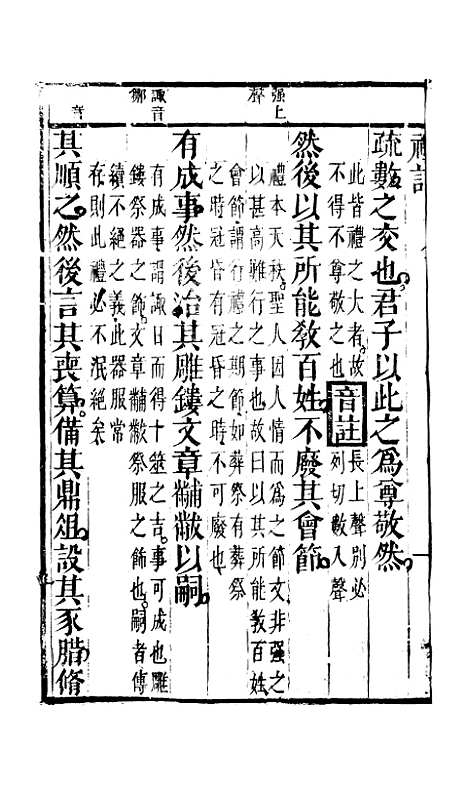 强上
聲
諏音
鄒
音
禮記
疏數之交也君子以此之爲尊敬然
此皆禮之大者故
不得不尊敬之也
音註
長上聲別必
列切數入聲
然後以其所能敎百姓不廢其會節
禮本天秩聖人因人情而爲之節文非强之
以甚高難行之事也故曰以其所能敎百姓
會節謂行禮之期節如葬祭有葬祭
之時冠昏有冠昏之時不可廢也
有成事然後治其雕鏤文章黼黻以嗣
有成事謂諏日而得卜筮之吉事可成也雕
鏤祭器之飾文章黼黻祭服之飾也嗣者傳
續不絕之義此器服常
存則此禮必不泯絕矣
其順之然後言其喪算備其鼎俎設其豕腊脩